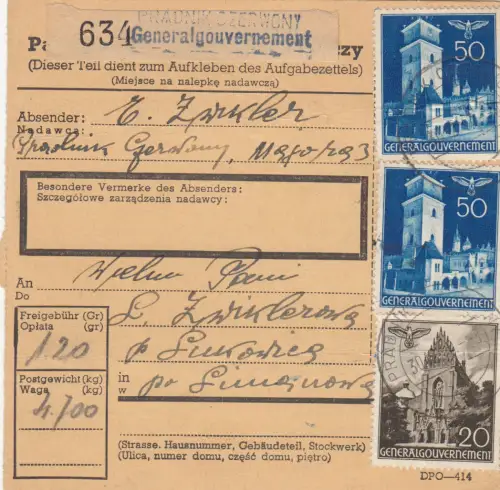 634
PRĄDNIK CZERWONY
Generalgouvernement
Pa
czy
(Dieser Teil dient zum Aufkleben des Aufgabezettels)
(Miejsce na nalepkę nadawczą)
Absender: E. Zwikler
Nadawca:
Prądnik Czerwony,
Besondere Vermerke des Absenders:
Szczegółowe zarządzenia nadawcy:
An Wielm Pani
Do
L. Zwiklerowa
p Łukowica
in
w
po Limanowa
Freigebühr (Gr)
Opłata (gr)
120
Postgewicht (kg)
Waga (kg)
4,700
(Strasse, Hausnummer, Gebäudeteil, Stockwerk)
(Ulica, numer domu, część domu, piętro)
DPO—414
50
GENERALGOUVERNEMENT
50
GENERALGOUVERNEMENT
20
GENERALGOUVERNEMENT